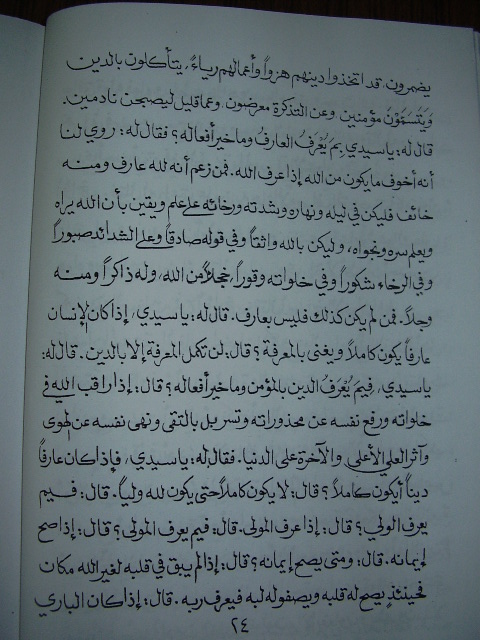 يضمرون. قد اتخذوا دينهم هزواً وأعمالهم رياءً، يتأكلون بالدين
ويَتَسَمَّوْنَ مؤمنين وعن التذكرة معرضون. وعما قليل ليصبحن نادمين.
قال له: يا سيدي بِمَ يُعْرَفُ العارفُ وما خير أفعاله؟ فقال له: روي لنا
أنه أخوف ما يكون من الله إذا عرف الله. فمن زعم أنه لله عارف ومنه
خائف فليكن في ليله ونهاره وشدته ورخائه على علم ويقين بأن الله يراه
ويعلم سره ونجواه، وليكن بالله واثقاً وفي قوله صادقاً وعلى الشدائد صبوراً
وفي الرخاء شكوراً وفي خلواته وقوراً، خجلاً من الله، وله ذاكراً ومنه
وجلاً. فمن لم يكن كذلك فليس بعارف. قال له: يا سيدي، إذا كان الإنسان
عارفاً يكون كاملاً ويغنى بالمعرفة؟ قال: لن تكمل المعرفة إلا بالدين. قال له:
يا سيدي، فِيمَ يُعْرَفُ الدين بالمؤمن وما خير أفعاله؟ قال: إذا راقب الله في
خلواته ورفع نفسه عن محذوراته وتسربل بالتقى ونهى نفسه عن الهوى
وآثر العلي الأعلى والآخرة على الدنيا. فقال له: يا سيدي، فإذا كان عارفاً
ديناً أيكون كاملاً؟ قال: لا يكون كاملاً حتى يكون لله ولياً. قال: فيم
يعرف الولي؟ قال: إذا عرف المولى. قال: فيم يعرف المولى؟ قال: إذا صح
إيمانه. قال: ومتى يصح إيمانه؟ قال: إذا لم يبق في قلبه لغير الله مكان
فحينئذٍ يصح له قلبه ويصفو له لبه فيعرف ربه. قال: إذا كان الباري
٢٤